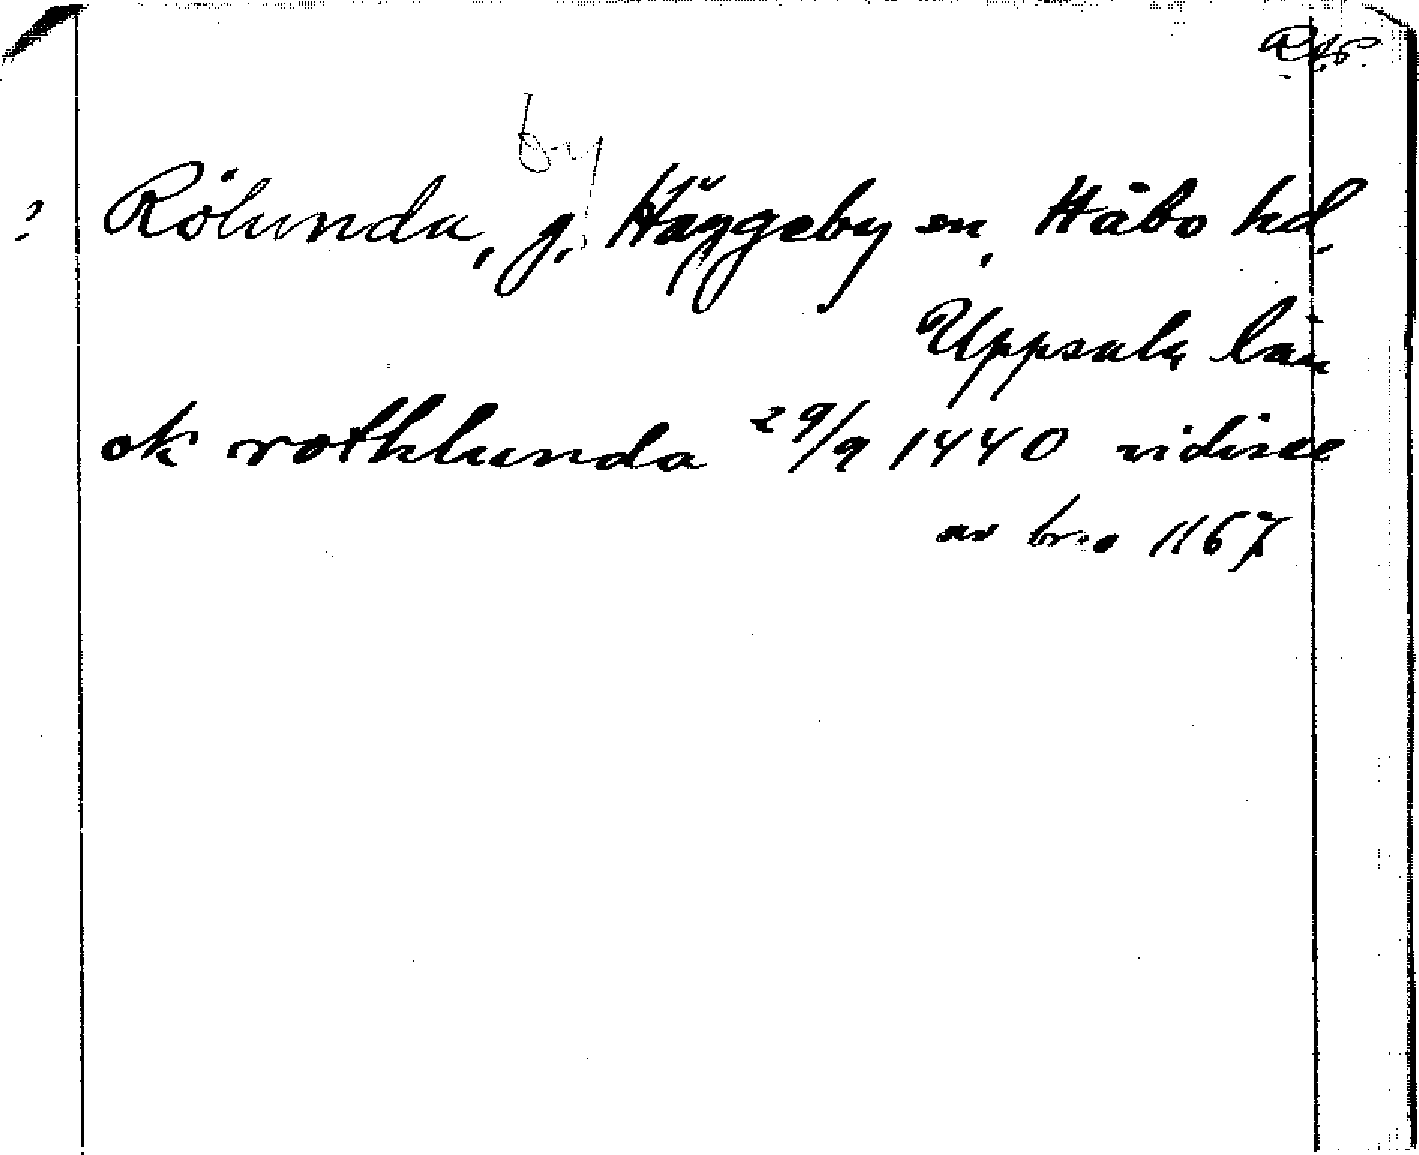 by
? Rölunda, j, Häggeby sn, Håbo hd,
Uppsala län
ok rothlunda 29/9 1440 vidisse
av brev 1167